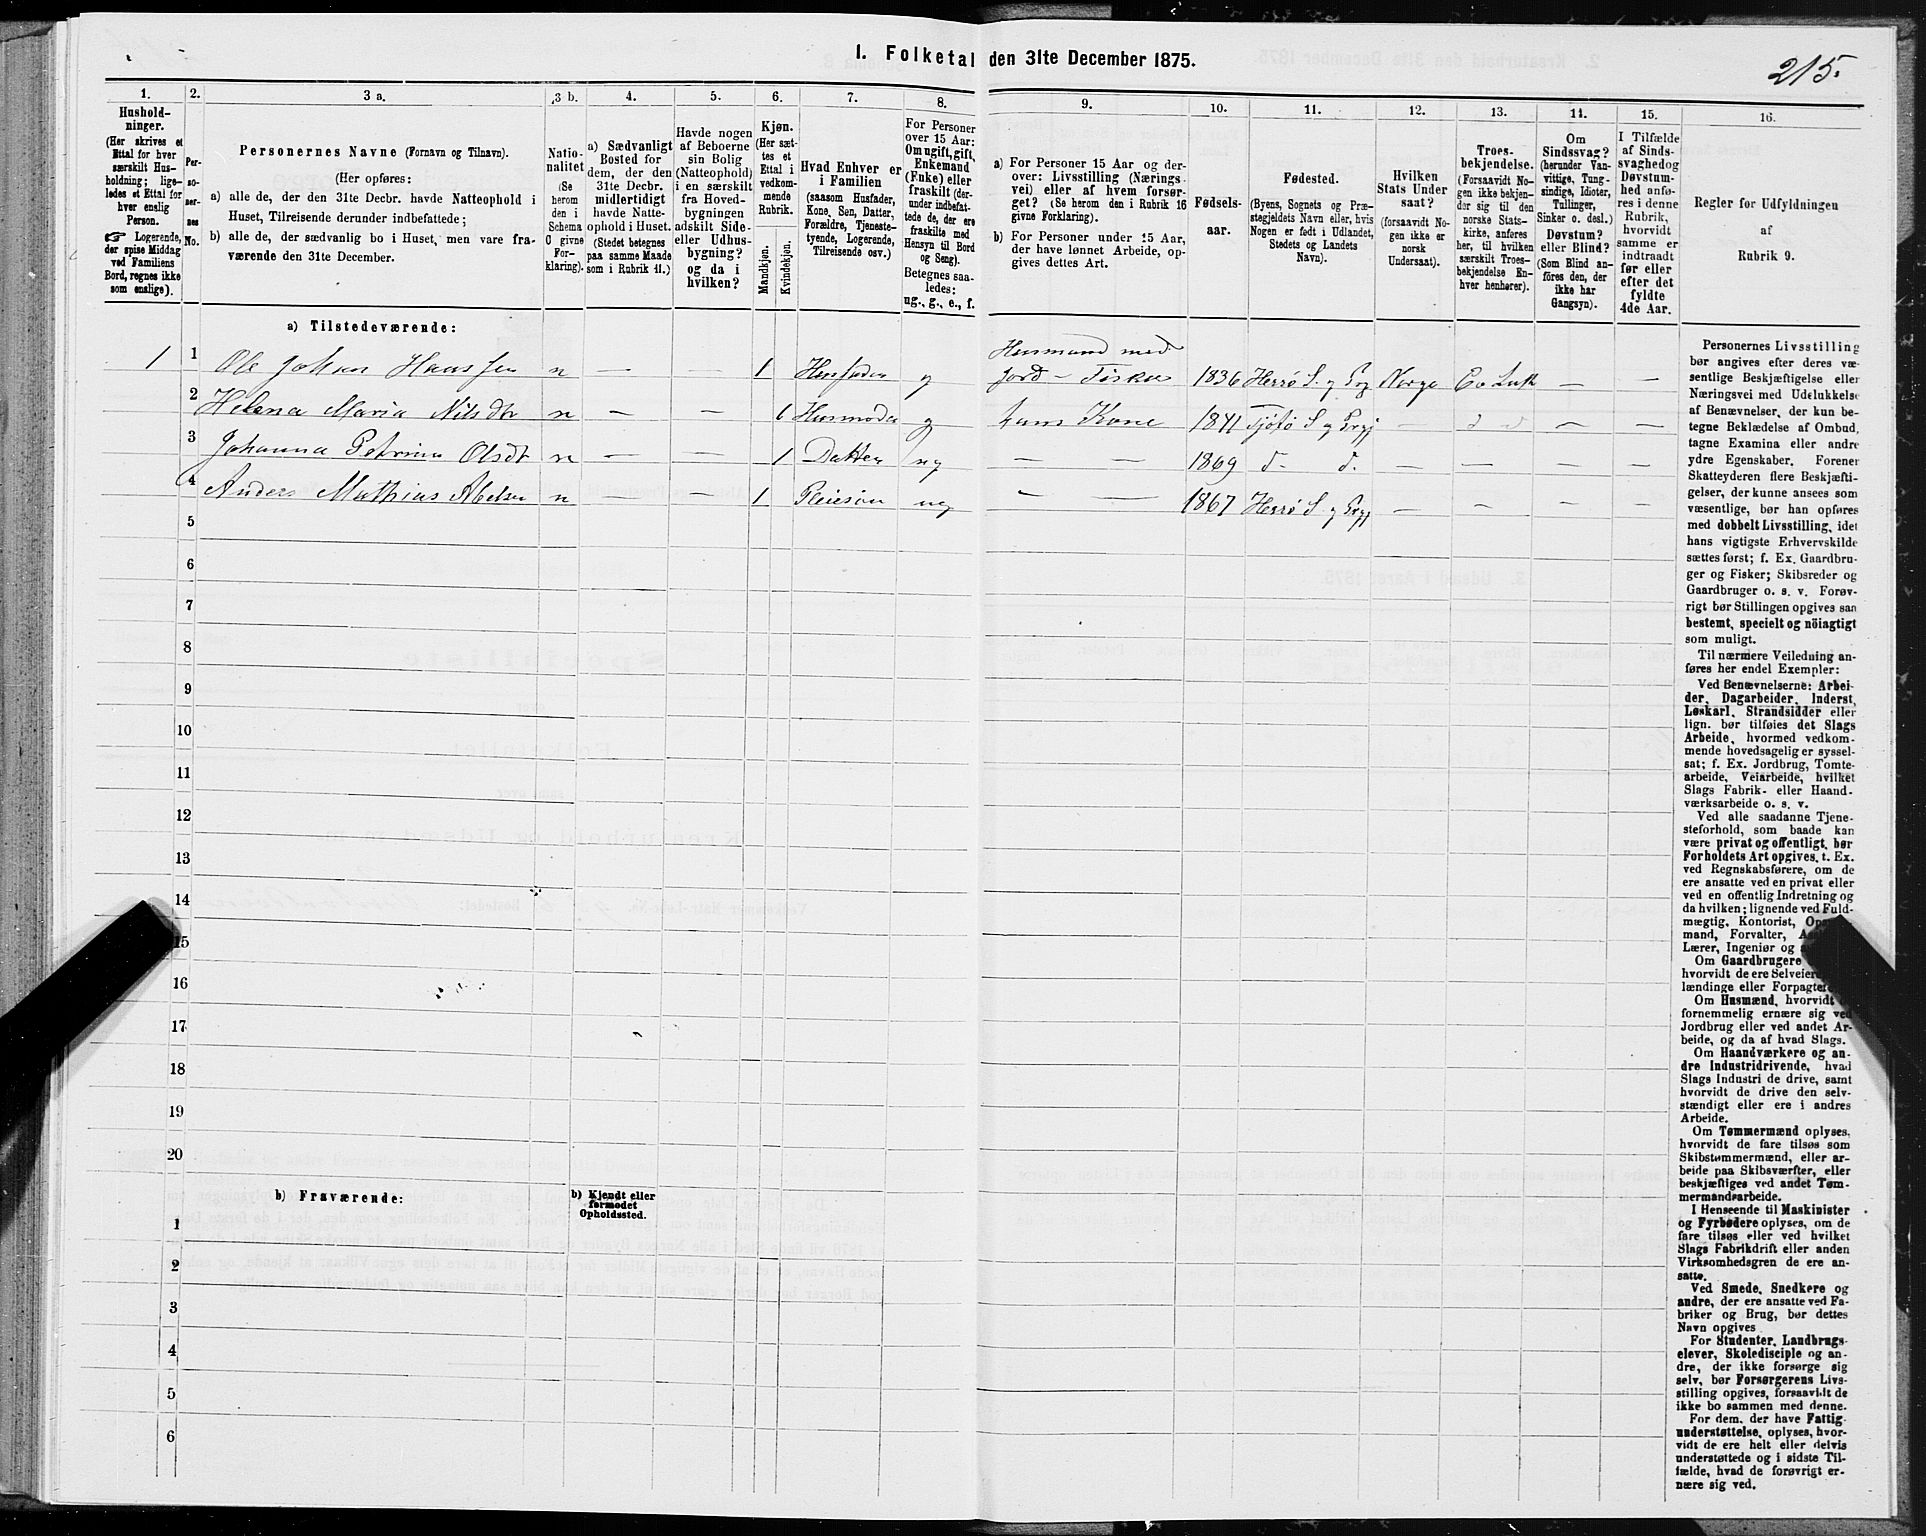 I. Folketal den 31te December 1875.
215.
1.
Hushold-
ninger.
(Her skrives et
Ettal for hver
særskilt Hus-
holdning; lige-
ledes et Ettal for
hver enslig
Person.
☞ Logerende,
der spise Middag
ved Familiens
Bord, regnes ikke
som enslige).
2.
Per-
so-
ner-
nes
No.
3 a.
Personernes Navne (Fornavn og Tilnavn).
(Her opføres:
a) alle de, der den 31te Decbr. havde Natteophold i
Huset, Tilreisende derunder indbefattede;
b) alle de, der sædvanlig bo i Huset, men vare fra-
værende den 31te December.
3 b.
Natio-
nalitet
(Se
herom
den i
Schema
O givne
For-
klaring).
4.
a) Sædvanligt
Bosted for
dem, der den
31te Decbr.
midlertidigt
havde Natte-
ophold i Huset.
(Stedet betegnes
paa samme Maade
som i Rubrik 11.)
5.
Havde nogen
af Beboerne
sin Bolig
(Natteophold)
i en særskilt
fra Hoved-
bygningen
adskilt Side-
eller Udhus-
bygning?
og da i
hvilken?
6.
Kjøn.
(Her sæt-
tes et
Ettal i
vedkom-
mende
Rubrik.
Mandkjøn.
Kvindekjøn.
7.
Hvad Enhver er
i Familien
(saasom Husfader,
Kone, Søn, Datter,
Forældre, Tjeneste-
tyende, Logerende,
Tilreisende osv.)
8.
For Personer
over 15 Aar:
Om ugift, gift,
Enkemand
(Enke) eller
fraskilt (der-
under indbefat-
tede de, der ere
fraskilte med
Hensyn til Bord
og Seng).
Betegnes saa-
ledes:
ug., g., e., f.
9.
a) For Personer 15 Aar og der-
over: Livsstilling (Nærings-
vei) eller af hvem forsør-
get? (Se herom den i Rubrik 16
givne Forklaring).
b) For Personer under 15 Aar,
der have lønnet Arbeide, op-
gives dettes Art.
10.
Fødsels-
aar.
11.
Fødested.
(Byens, Sognets og Præ-
stegjeldets Navn eller, hvis
Nogen er født i Udlandet,
Stedets og Landets
Navn).
12.
Hvilken
Stats Under
saat?
(forsaavidt No-
gen ikke er
norsk
Undersaat).
13.
Troes-
bekjendelse.
(Forsaavidt No-
gen ikke bekjen-
der sig til den
norske Stats-
kirke, anføres
her, til hvilken
særskilt Troes-
bekjendelse En-
hver henhører).
14.
Om
Sindssvag?
(herunder Van-
vittige, Tung-
sindige, Idioter,
Tullinger,
Sinker o. desl.)
Døvstum?
eller Blind?
(Som Blind an-
føres den, der
ikke har
Gangsyn).
15.
I Tilfælde
af Sinds-
svaghed og
Døvstum-
hed anfø-
res i denne
Rubrik,
hvorvidt
samme er
indtraadt
før eller
efter det
fyldte
4de Aar.
16.
Regler for Udfyldningen
af
Rubrik 9.
a) Tilstedeværende:
1 1 Ole Johan Hanssen n — — 1 Husfader g Husmand med
Jord - Fisker 1836 Herrø S. og Prg Norge Ev Luth — —
2 Helena Maria Nilsdtr n — — 1 Husmoder g hans Kone 1841 Tjøtø S og Prgj — d d — —
3 Johanna Petrina Olsdtr n — — 1 Datter ug — — 1869 d. d. — — — —
4 Anders Mathias Abelsen n — — 1 Pleiesøn ug — — 1867 Herrø S. og Prgj — — — —
5
6
7
8
9
10
11
12
13
14
15
16
17
18
19
20
b) Fraværende:
b) Kjendt eller
formodet
Opholdssted.
1
2
3
4
5
6
Personernes Livsstilling
bør angives efter deres væ-
sentlige Beskjæftigelse eller
Næringsvei med Udelukkelse
af Benævnelser, der kun be-
tegne Beklædelse af Ombud,
tagne Examina eller andre
ydre Egenskaber. Forener
Skatteyderen flere Beskjæfti-
gelser, der kunne ansees som
væsentlige, bør han opføres
med dobbelt Livsstilling, idet
hans vigtigste Erhvervskilde
sættes først; f. Ex. Gaardbru-
ger og Fisker; Skibsreder og
Gaardbruger o. s. v. Forøv-
rigt bør Stillingen opgives saa
bestemt, specielt og nöiagtigt
som muligt.
Til nærmere Veiledning an-
føres her endel Exempler:
Ved Benævnelserne: Arbei-
der, Dagarbeider, Inderst,
Løskarl, Strandsidder eller
lign. bør tilføies det Slags
Arbeide, hvormed vedkom-
mende hovedsagelig er syssel-
sat; f. Ex. Jordbrug, Tomte-
arbeide, Veiarbeide, hvilket
Slags Fabrik- eller Haand-
værksarbeide o. s. v.
Ved alle saadanne Tjene-
steforhold, som baade kan
være privat og offentligt, bør
Forholdets Art opgives, t. Ex.
ved Regnskabsførere, om de
ere ansatte ved en privat eller
ved en offentlig Indretning og
da hvilken; lignende ved Fuld-
mægtig, Kontorist,
mand, Forvalter,
Lærer, Ingeniør og
Om Gaardbrugere
hvorvidt de ere Selveiere,
lændinge eller Forpagtere.
Om Husmænd, hvorvidt
fornemmelig ernære sig ved
Jordbrug eller ved andet Ar-
beide, og da af hvad Slags.
Om Haandværkere og an-
dre Industridrivende, hvad
Slags Industri de drive, samt
hvorvidt de drive den selv-
stændigt eller ere i andres
Arbeide.
Om Tømmermænd oplyses,
hvorvidt de fare tilsøs som
Skibstømmermænd, eller ar-
beide paa Skibsværfter, eller
beskjæftiges ved andet Tøm-
mermandsarbeide.
I Henseende til Maskinister
og Fyrbødere oplyses, om de
fare tilsøs eller ved hvilket
Slags Fabrikdrift eller anden
Virksomhedsgren de ere an-
satte.
Ved Smede, Snedkere og
andre, der ere ansatte ved Fa-
briker og Brug, bør dettes
Navn opgives.
For Studenter, Landbrugs-
elever, Skoledisciple og an-
dre, der ikke forsørge sig
selv, bør Forsørgerens Livs-
stilling opgives, forsaavidt de
ikke bo sammen med denne.
For dem, der have Fattig-
understøttelse, oplyses, hvor-
vidt de ere helt eller delvis
understøttede og i sidste Til-
fælde, hvad de forøvrigt er-
nære sig ved.